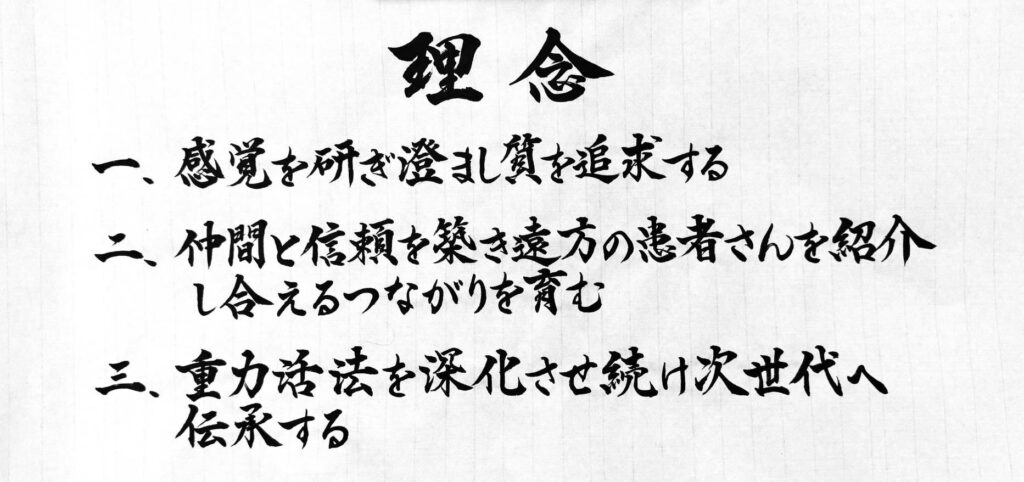 理念
一、感覚を研ぎ澄まし質を追求する
二、仲間と信頼を築き遠方の患者さんを紹介
し合えるつながりを育む
三、重力活法を深化させ続け次世代へ
伝承する